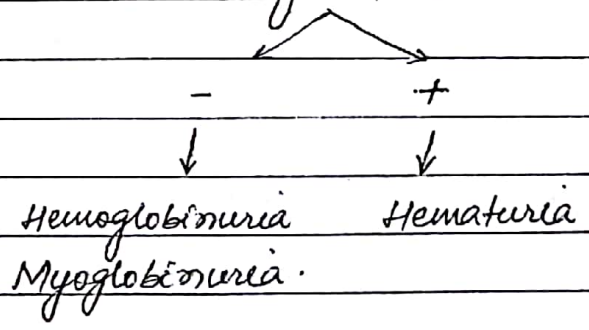 - +
Hemoglobinuria Hematuria
Myoglobinuria.